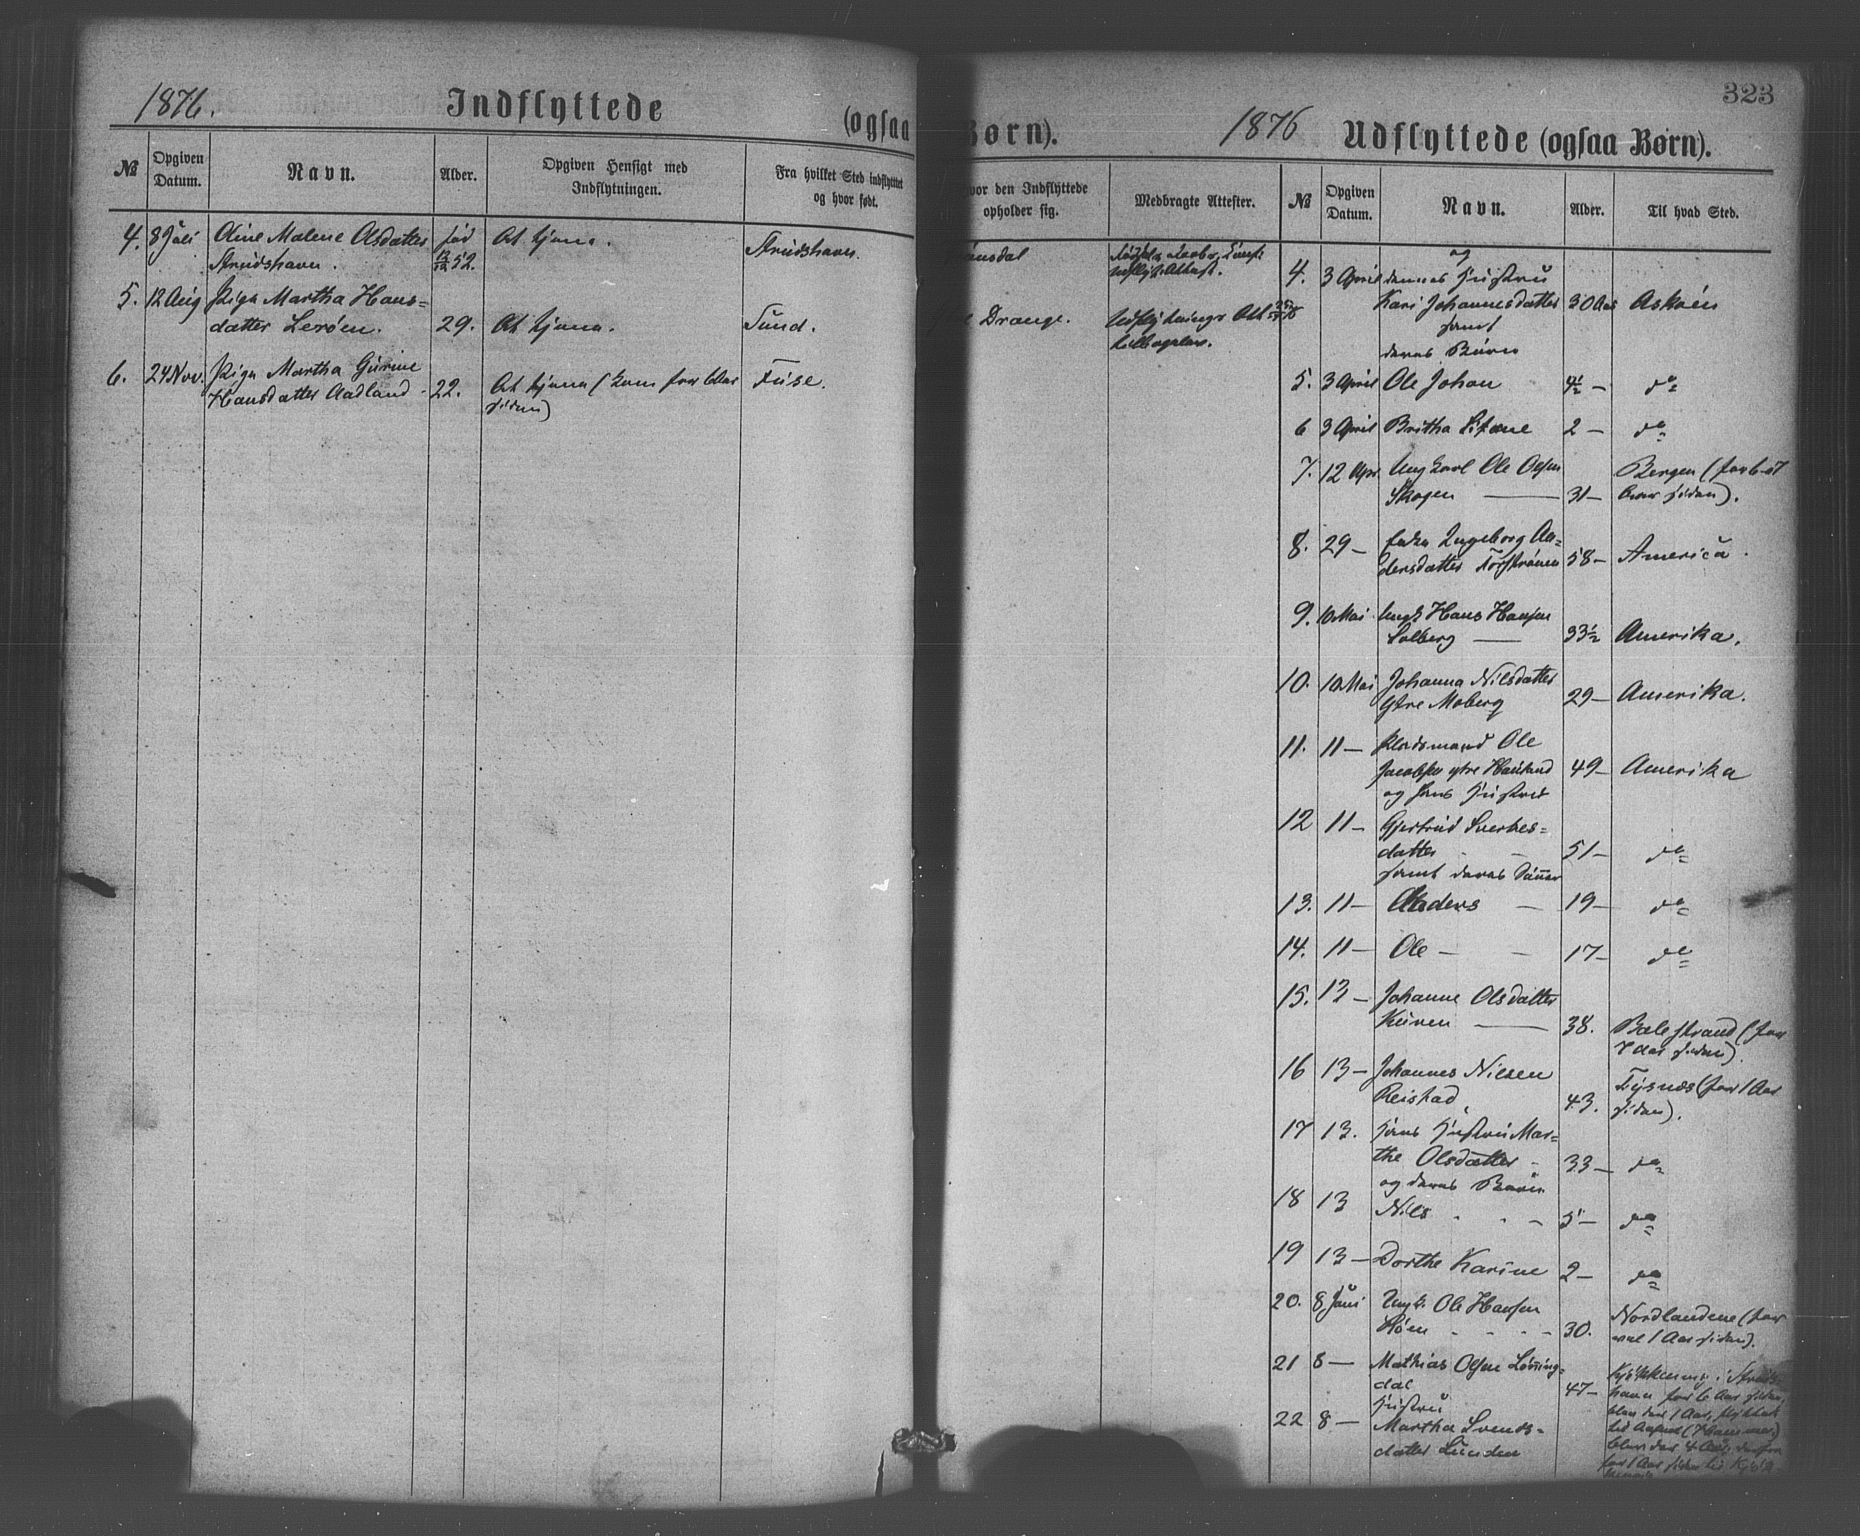 1876.
Indflyttede
(ogsaa
№
Opgiven Datum.
Navn.
Alder.
Opgiven Hensigt med Indflytningen.
Fra hvilket Sted indflyttet og hvor født.
4. 8 Juli Oline Malene Olsdatter fød At tjene. Strudshavn.
Strudshavn. 52.
5. 12 Aug Pige Martha Hans-
datter Lerøen. 29. At tjene. Sund.
6. 24 Nov. Pige Martha Gurine
Hansdatter Aadland 22. At tjene (kom for 6 Aar Fuse.
siden)
Børn).
vor den Indflyttede opholder sig.
Medbragte Attester.
Drange. Udflytnings Att
1876
Udflyttede (ogsaa Børn).
323
№
Opgiven Datum.
Navn.
Alder.
Til hvad Sted.
og
4. 3 April dennes Hustru
Kari Johannesdatter 30 Aar Askøen
samt
deres Børn
5. 3 April Ole Johan 4½ — do
6 3 April Britha 2 — do
7. 12 Apr. Ungkarl Ole Olsen Bergen (for
Skogen — 31 — siden).
8. 29 — Enke Ingeborg An-
dersdatter 58 — America.
9. 10 Mai Ungk Hans Hansen
Solberg — 33½ Amerika.
10. 10 Mai Johanna Nilsdatter
Ytre Moberg 29 — Amerika.
11. 11 — Pladsmand Ole
Jacobsen ytre Hauland 49 — Amerika
og hans Hustru
12 11 — Gjertrud
datter 51 — do
samt deres Sønner
13. 11 — Anders — 19 — do
14. 11 — Ole — 17 — do
15. 13 — Johanne Olsdatter
Kuven — 38. Balestrand (for
7 Aar siden).
16 13 — Johannes Nilsen Tysnæs (for 1 Aar
Reistad 43. siden).
17 13. Hans Hustru Mar-
the Olsdatter 33 — do
og deres Børn
18 13 Nils 5 — do
19 13 — Dorthe Karine 2 — do
20. 8 Juni Ungk. Ole Hansen Nordlandene (for
30. vel 1 Aar siden).
21 8 — Mathias Olsen Løning-
dal 47 —
Hustru
22 8 — Martha Svends-
datter Lunden